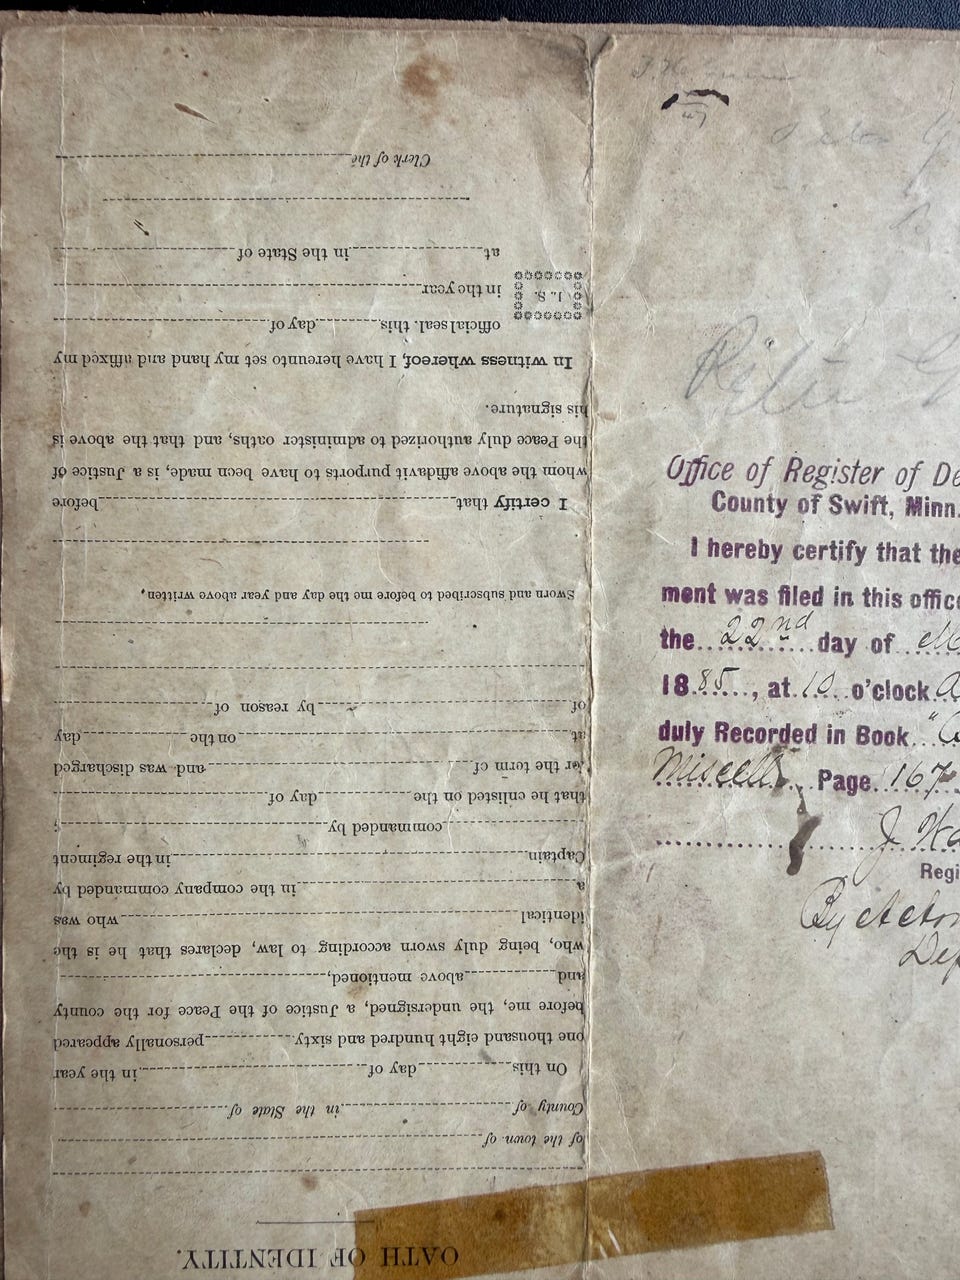 OATH OF IDENTITY.
of the town of
County of in the State of
On this day of in the year
one thousand eight hundred and sixty personally appeared
before me, the undersigned, a Justice of the Peace for the county
and above mentioned,
who, being duly sworn according to law, declares that he is the
identical who was
a in the company commanded by
Captain in the regiment
commanded by ;
that he enlisted on the day of
for the term of and was discharged
at on the day
of by reason of
Sworn and subscribed to before me the day and year above written,
I certify that before
whom the above affidavit purports to have been made, is a Justice of
the Peace duly authorized to administer oaths, and that the above is
his signature.
In witness whereof, I have hereunto set my hand and affixed my
official seal, this day of
L. S.
in the year
at in the State of
Clerk of the
47
Office of Register of De
County of Swift, Minn.
I hereby certify that the
ment was filed in this office
the 22nd day of
1885, at 10 o'clock A
duly Recorded in Book "
Miscell Page 167
J
Regi
By
Dep